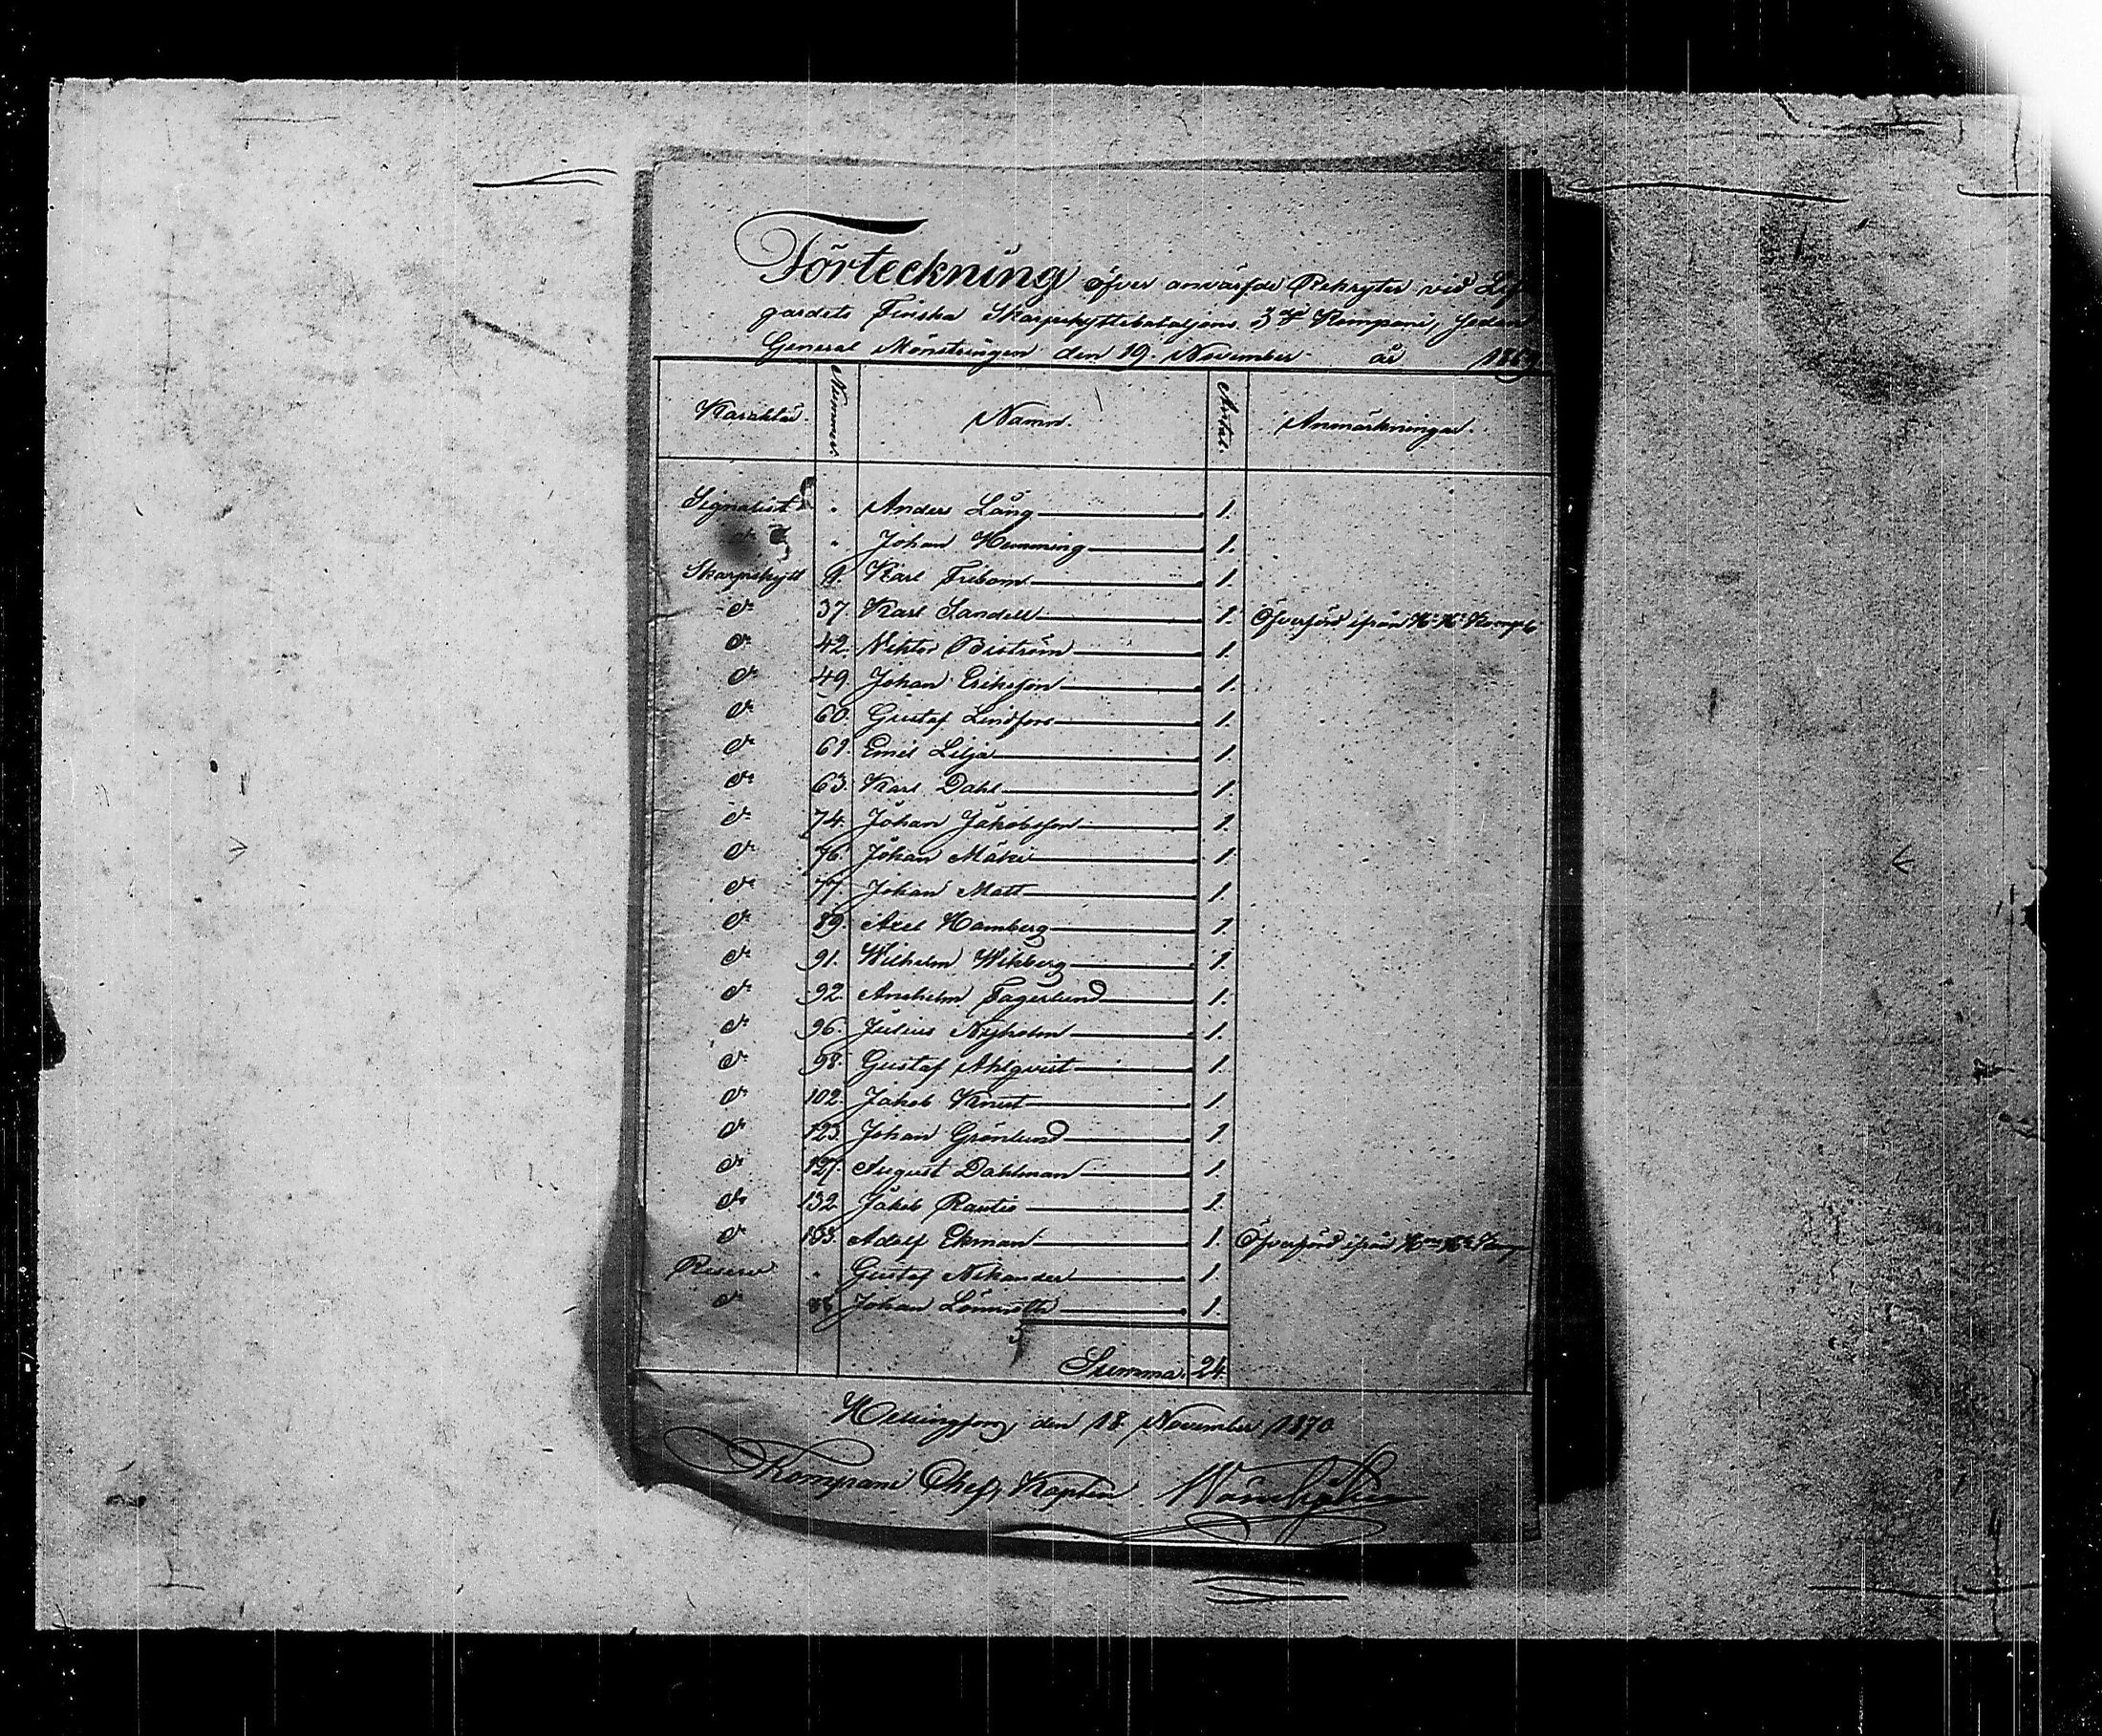 Förteckning öfver anvärfde Rekryter vid Lif
gardets Finska Skarpskyttebataljons 3dje Kompani, sedan
General Mönstringen den 19 November år 1869
Karakter. Nummer. Namn. Antal. Anmärkningar.
Signalist " Anders Lång 1.
" Johan Hemming 1.
Skarpskytt 9. Karl Fribom 1.
d:o 37. Karl Sandell 1. Öfverförd ifrån Komp.
d:o 42. Viktor Biström 1.
d:o 49. Johan Eriksson 1.
d:o 60. Gustaf Lindfors 1.
d:o 61. Emil Lilja 1.
d:o 63. Karl Dahl 1.
d:o 74. Johan Jakobsson 1.
d:o 76. Johan Mäki 1.
d:o 77. Johan Matt 1.
d:o 89. Axel Hamberg 1.
d:o 91. Wilhelm Wikberg 1.
d:o 92. Anshelm Fagerlund 1.
d:o 96. Julius Nyholm 1.
d:o 98. Gustaf Ahlqvist 1.
d:o 102. Jakob Knut 1.
d:o 123. Johan Grönlund 1.
d:o 127. August Dahlman 1.
d:o 132. Jakob Rautio 1.
d:o 133. Adolf Ekman 1. Öfverförd ifrån Komp
Reserv " Gustaf Nikander 1.
d:o Johan Lönnroth 1.
Summa. 24.
Helsingfors, den 18 November 1870
Kompani Chef, Kapten